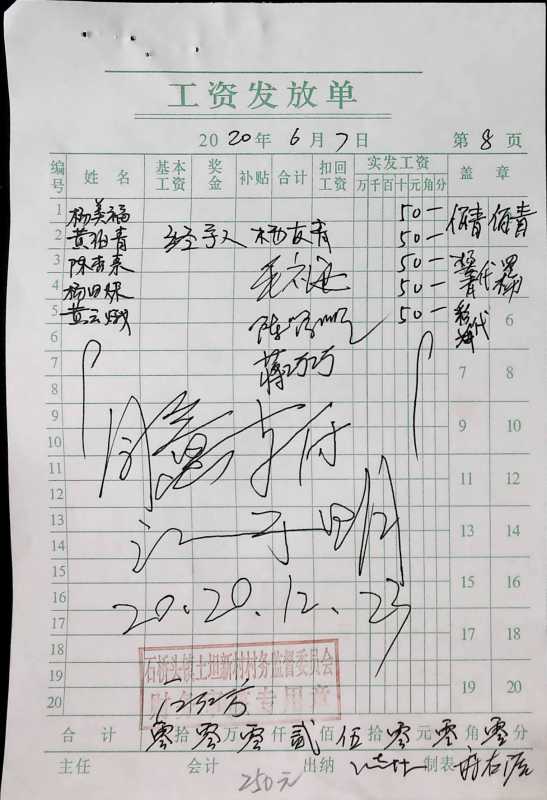 工资发放单
2020年6月7日 第8页
编号 姓名 基本工资 奖金 补贴 合计 扣回工资 实发工资 盖章
万千百十元角分
1 杨美福 50一
2 黄伯青 经手人 杨友青 50一 伯青 伯青
3 陈 50一
4 杨 50一 代
5 黄云娥 50一 代
6 6
7 蒋万万 7 8
8
9 9 10
10 同意支付
11 11 12
12
13 江子明 13 14
14
15 15 16
16 2020.12.23
17 17 18
18
石桥头镇上坦新村村务监督委员会
19 19 20
专用章
20
合计 零拾零万零仟贰佰伍拾零元零角零分
主任 会计 出纳 制表
250元